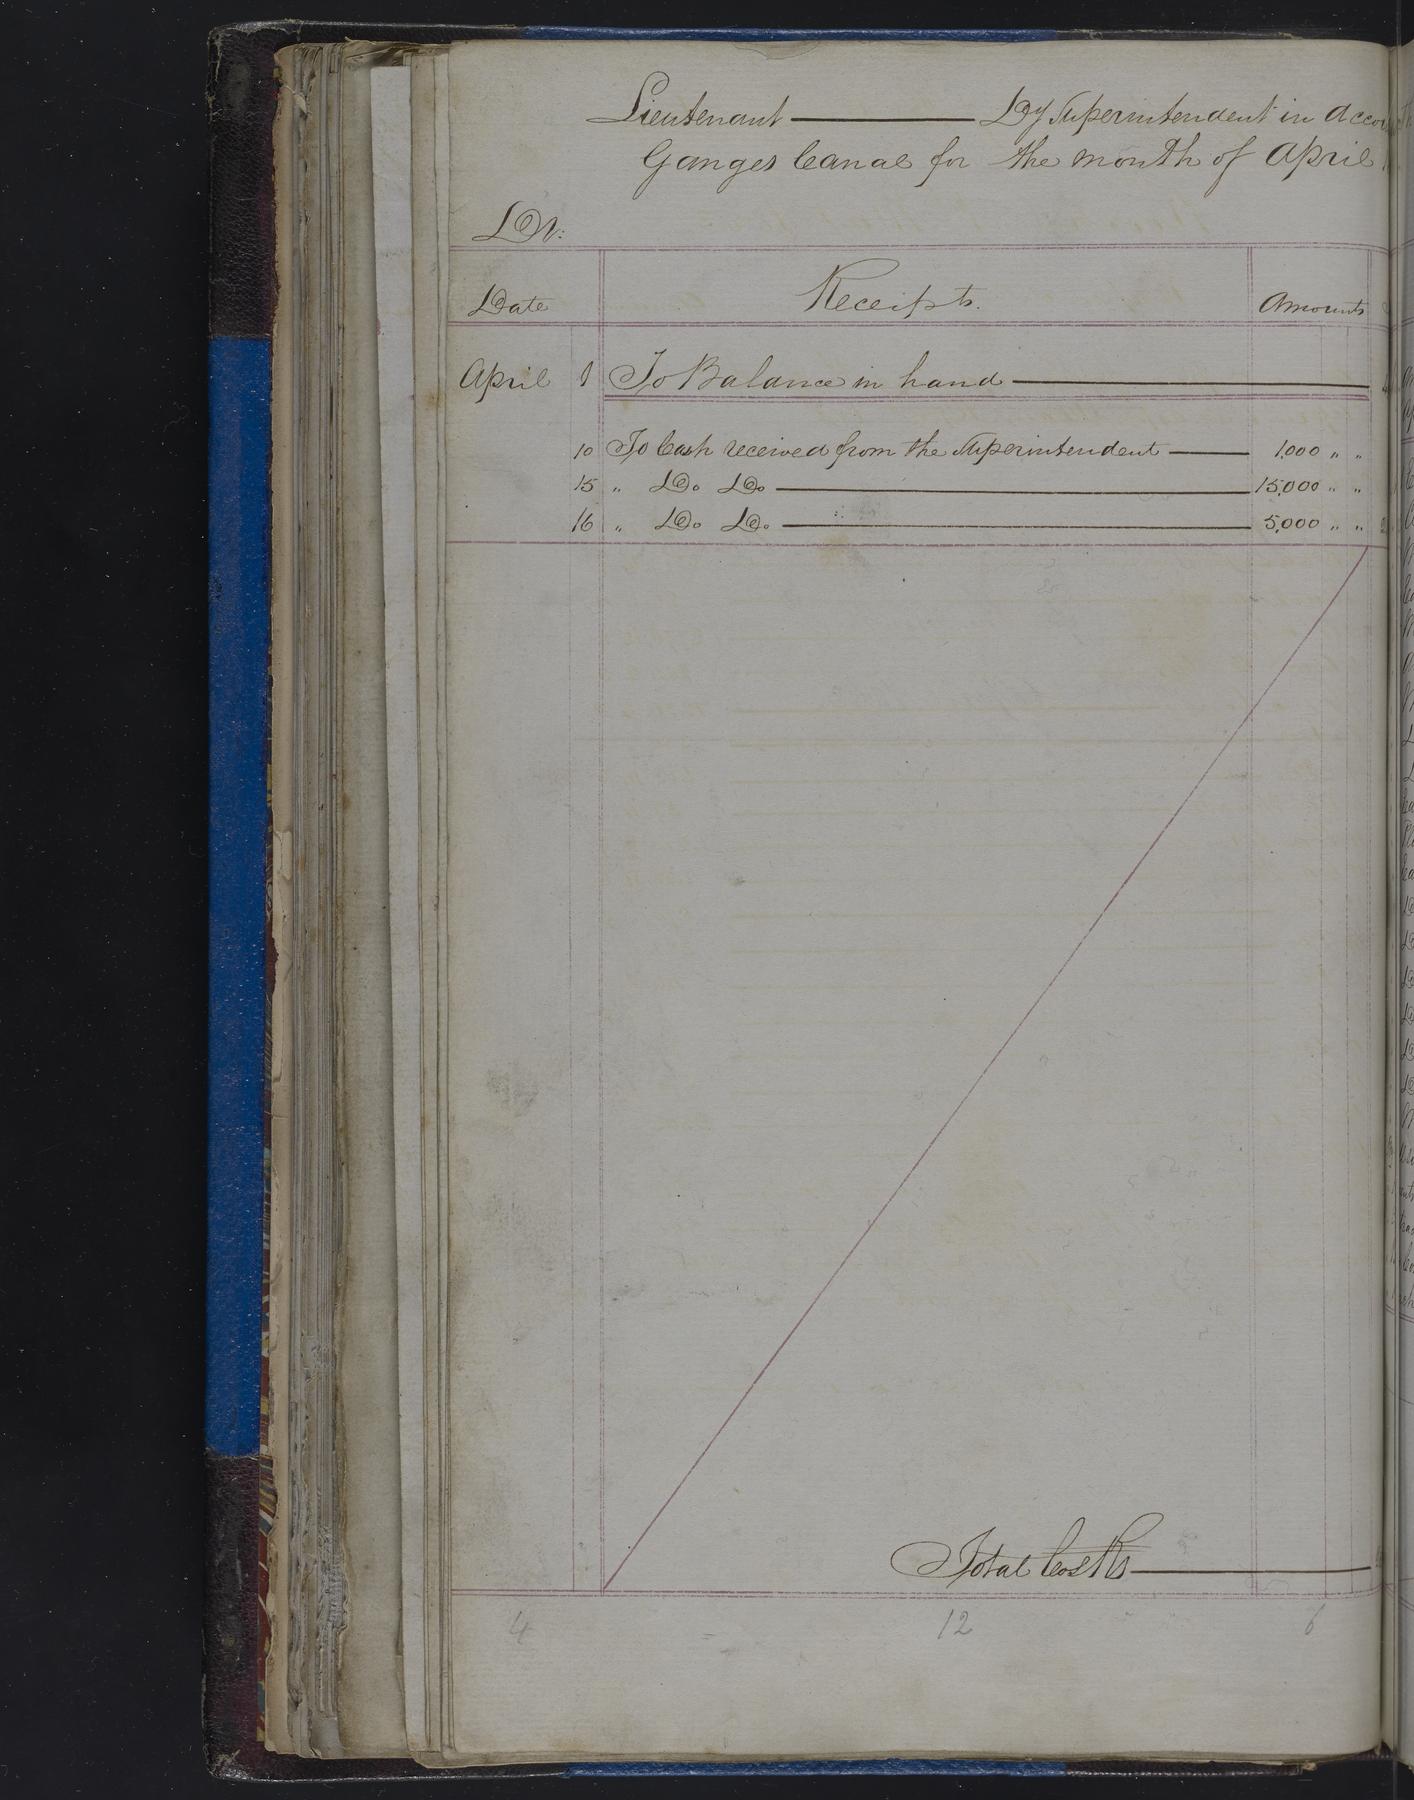 Lieutenant ——— Dy Superintendent in Accou
Ganges Canal for the month of April
Dr:
Date Receipts. Amounts
April 1 To Balance in hand ———
10 To Cash received from the Superintendent ——— 1,000 " "
15 " Do Do ——— 15,000 " "
16 " Do Do ——— 5,000 " "
Total Co's Rs ———
4 12 6